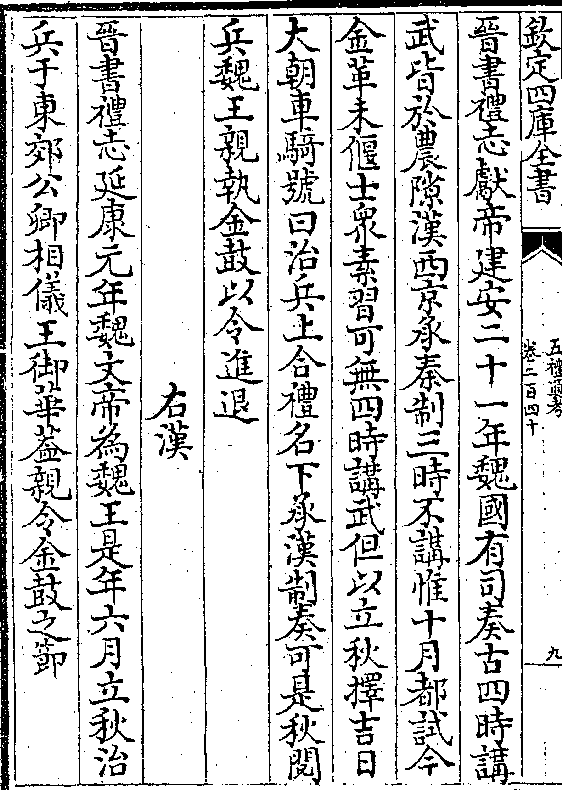 欽定四庫全書
五禮通考
卷二百四十
九
晉書禮志獻帝建安二十一年魏國有司奏古四時講
武皆於農隙漢西京承秦制三時不講惟十月都試今
金革未偃士衆素習可無四時講武但以立秋擇吉日
大朝車騎號曰治兵上合禮名下承漢制奏可是秋閱
兵魏王親執金鼓以令進退
右漢
晉書禮志延康元年魏文帝為魏王是年六月立秋治
兵于東郊公卿相儀王御華蓋親令金鼓之節